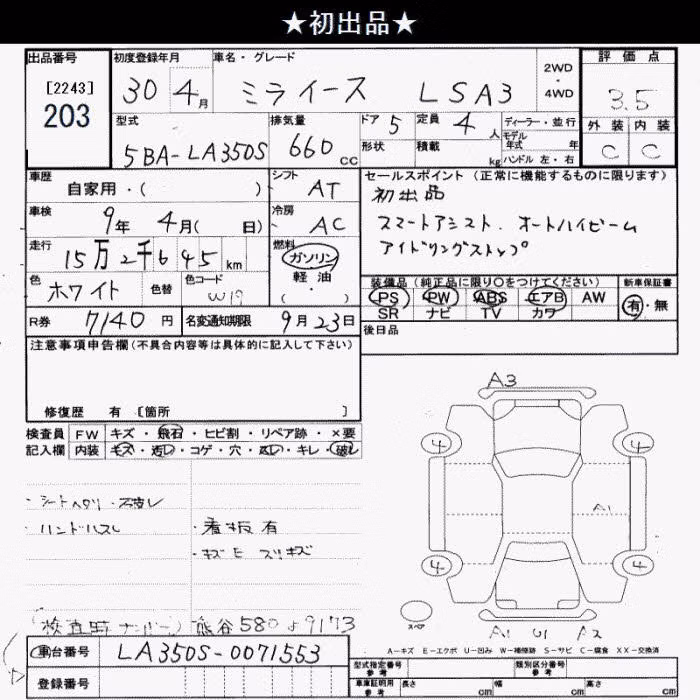 ★初出品★
出品番号 初度登録年月 車名・グレード 2WD・4WD 評価点
[2243] 203 30 4月 ミライース LSA3 3.5
型式 排気量 ドア 5 定員 4人 ディーラー・並行 外装 内装
5BA-LA350S 660cc 形状 積載 kg モデル年式 年 ハンドル 左・右 C C
車歴 自家用・( ) シフト AT セールスポイント(正常に機能するものに限ります)
初出品
車検 9年 4月( 日) 冷房 AC スマートアシスト.オートハイビーム
走行 15万2千645km 燃料 ガソリン・軽油・( ) アイドリングストップ
色 ホワイト 色替 色コード W19 装備品(純正品に限り○をつけてください) 新車保証書
PS PW ABS エアB AW 有・無
SR ナビ TV カワ
R券 7140円 名変通知期限 9月23日 後日品
注意事項申告欄(不具合内容等は具体的に記入して下さい)
修復歴 有 [箇所 ]
検査員 FW キズ・飛石・ヒビ割・リペア跡・×要
記入欄 内装 キズ・汚レ・コゲ・穴・・キレ・破レ
A3
4 4
・シートヘタリ・
・看板有 A1
・キズ
4 4
(検査時ナンバー) 熊谷580 よ9173
スペア A1 U1 A2
車台番号 LA350S-0071553
A-キズ E-エクボ U-凹み W-補修跡 S-サビ C-腐食 XX-交換済
登録番号
型式指定番号 参考 類別区分番号 参考
車庫証明用 参考 長さ cm 幅 cm 高さ cm